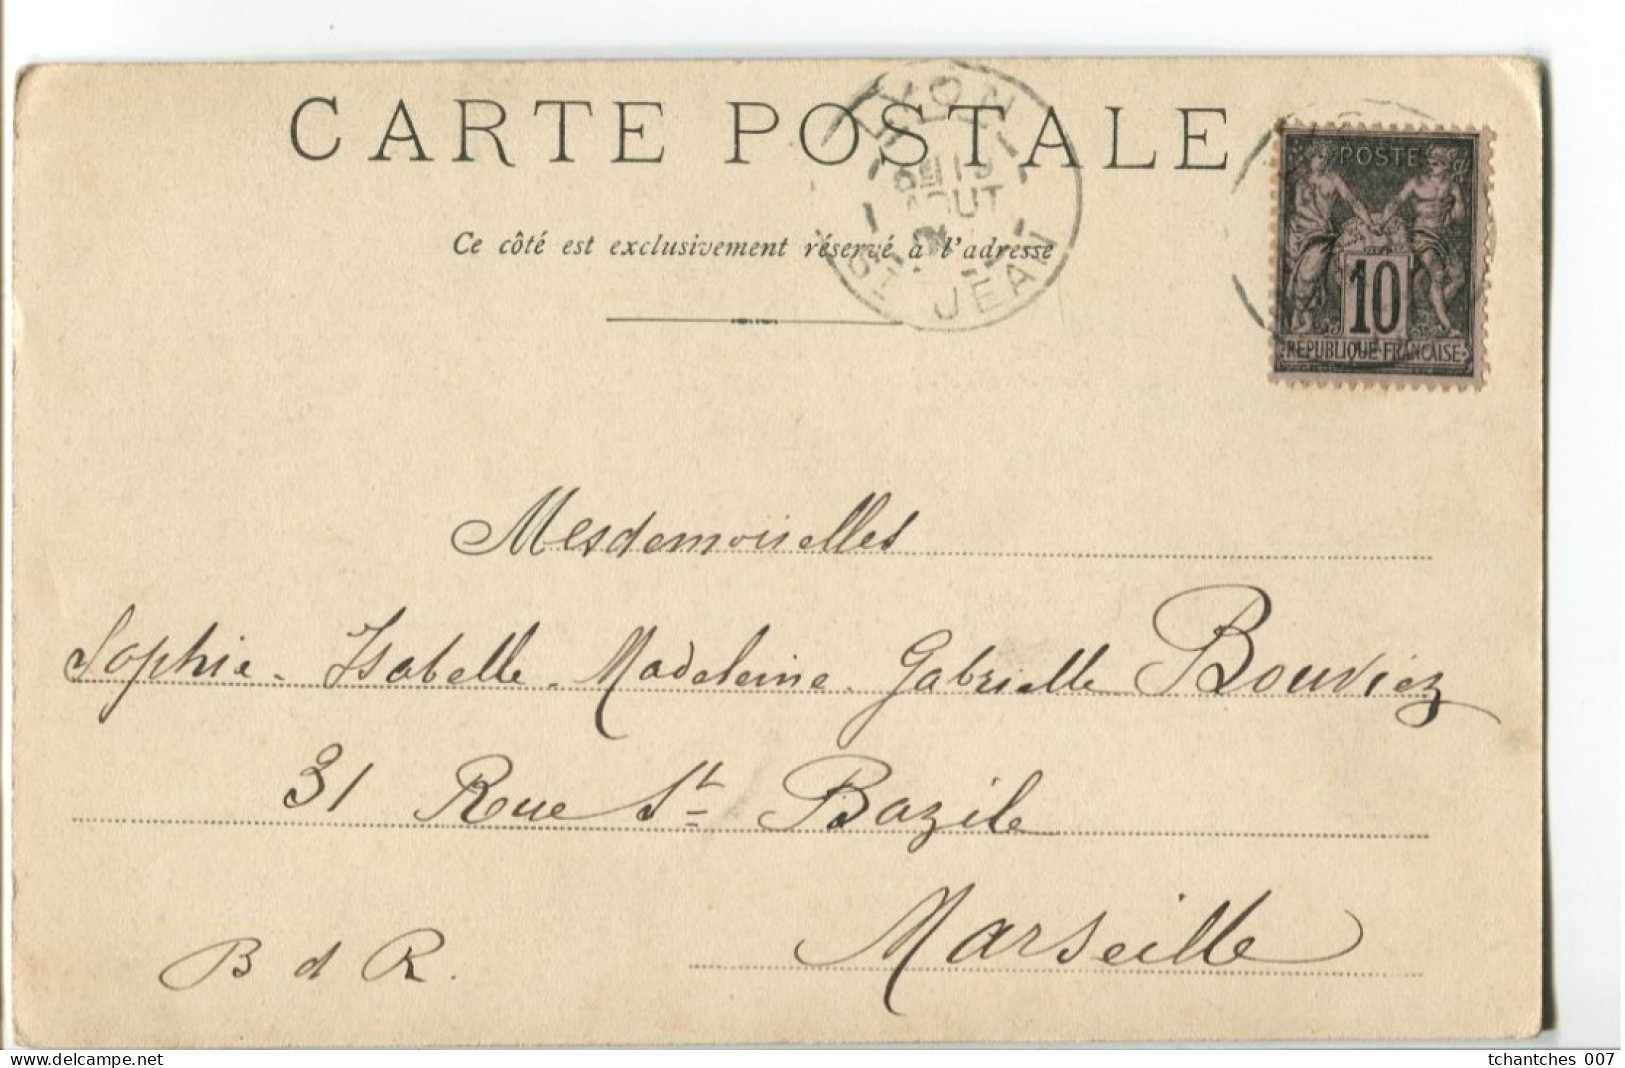 CARTE POSTALE
LYON
6E 19
AOUT
ST JEAN
POSTE
10
RÉPUBLIQUE FRANÇAISE
Ce côté est exclusivement réservé à l'adresse
Mesdemoiselles
Sophie - Isabelle - Madeleine - Gabrielle Bouviez
31 Rue St Bazile
Marseille
B d R.
www.delcampe.net
tchantches 007